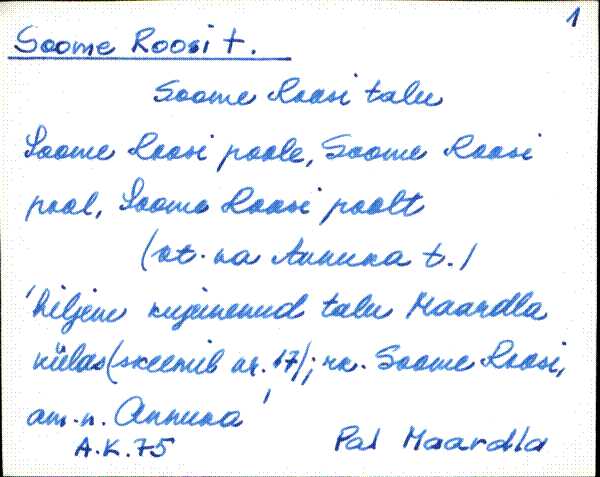 1
Soome Roosi t.
Soome Roosi talu
Soome Roosi poole, Soome Roosi
pool, Soome Roosi poolt
(vt. ka Annuka t.)
'hiljem kujunenud talu Maardla
külas (skeemil nr. 17); rk. Soome Roosi,
am. n. Annuka'
A.K. 75 Pal Maardla